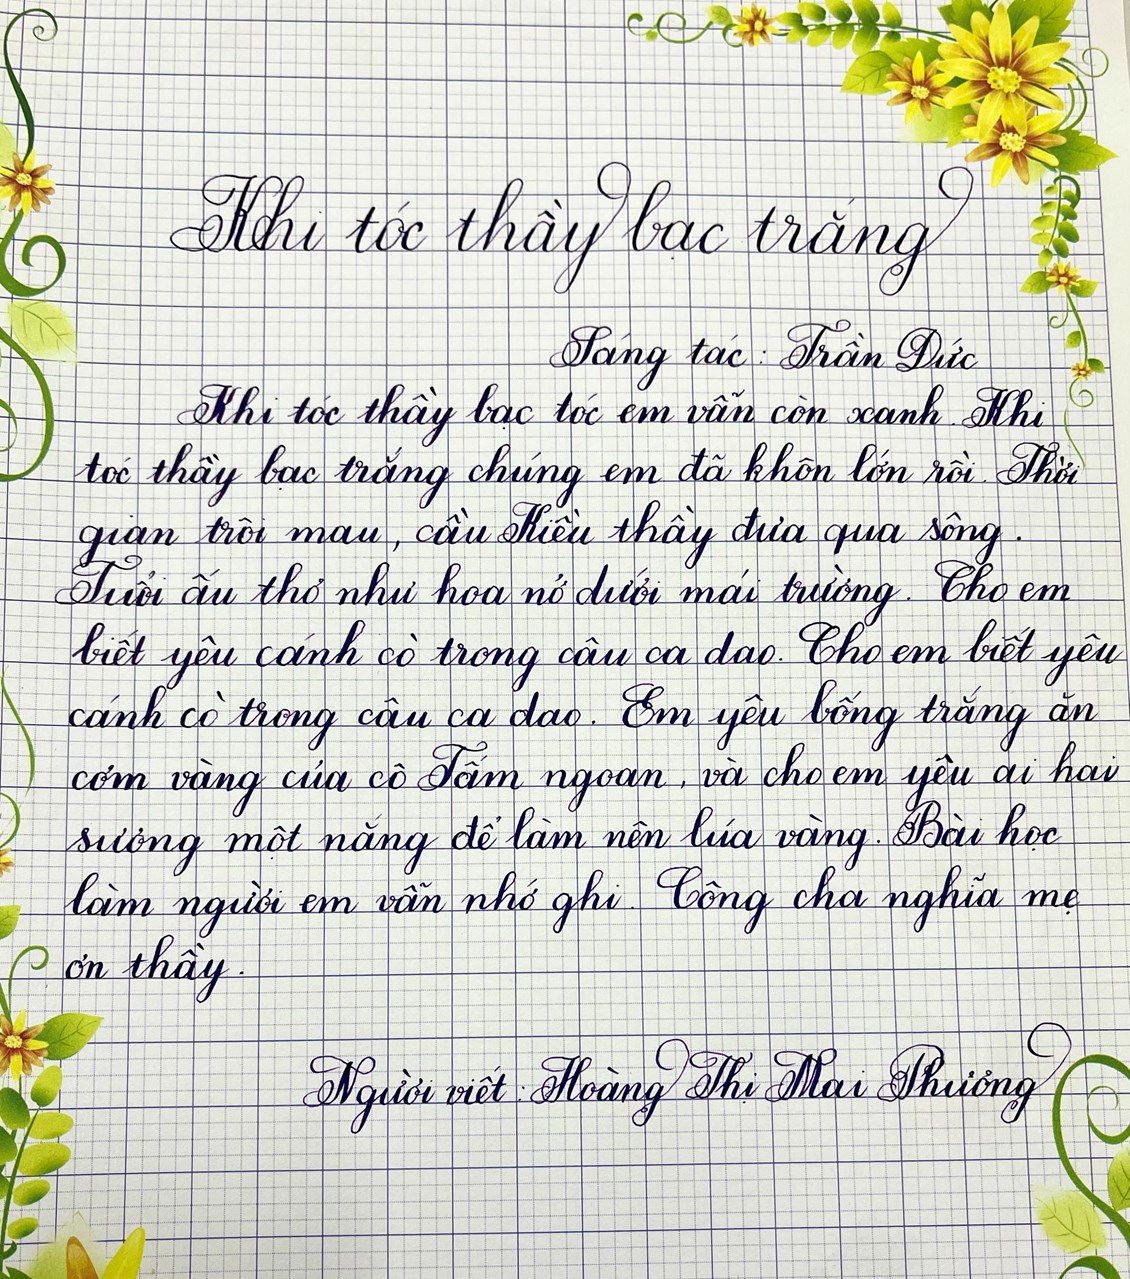 Khi tóc thầy bạc trắng
Sáng tác : Trần Đức
Khi tóc thầy bạc tóc em vẫn còn xanh. Khi
tóc thầy bạc trắng chúng em đã khôn lớn rồi. Thời
gian trôi mau, cầu Kiều thầy đưa qua sông.
Tuổi ấu thơ như hoa nở dưới mái trường. Cho em
biết yêu cánh cò trong câu ca dao. Cho em biết yêu
cánh cò trong câu ca dao. Em yêu bống trắng ăn
cơm vàng của cô Tấm ngoan, và cho em yêu ai hai
sương một nắng để làm nên lúa vàng. Bài học
làm người em vẫn nhớ ghi. Công cha nghĩa mẹ
ơn thầy.
Người viết : Hoàng Thị Mai Phương